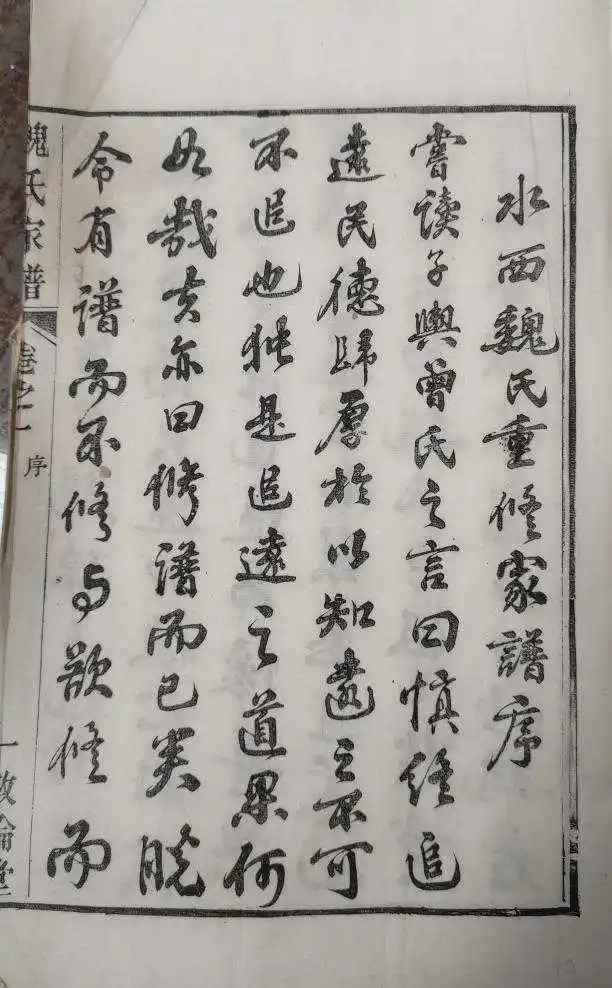 水西魏氏重修家譜序
嘗读子輿曾氏之言曰慎终追
遠民德歸厚於以知遠之不可
不追也独是追遠之道果何
如哉亦曰修譜而已矣
令有譜而不修与欲修而
魏氏家譜
卷之一
序
一
敦倫堂